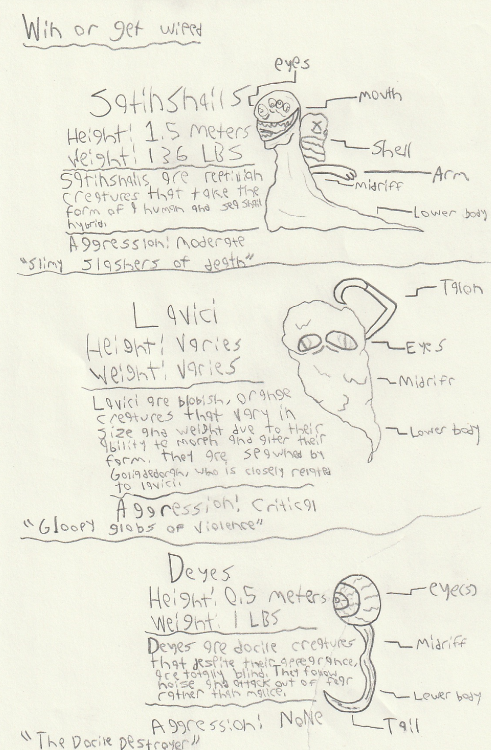 Win or get wiped
Satinshails
Height: 1.5 meters
Weight: 136 LBS
Satinshails are reptilian
creatures that take the
form of a human and sea shell
hybrid.
Aggression: Moderate
"Slimy slashers of death"
eyes
Mouth
Shell
Arm
Midriff
Lower body
Lavici
Height: Varies
Weight: Varies
Lavici are blobish, orange
creatures that vary in
size and weight due to their
ability to morph and alter their
form. They are spawned by
who is closely related
to lavici.
Aggression: Critical
"Gloopy globs of violence"
Talon
Eyes
Midriff
Lower body
Deyes
Height: 0.5 meters
Weight: 1 LBS
Deyes are docile creatures
that despite their appearance,
are totally blind. They follow
noise and attack out of fear
rather than malice.
Aggression: None
"The Docile Destroyer"
eye(s)
Midriff
Lower body
Tail